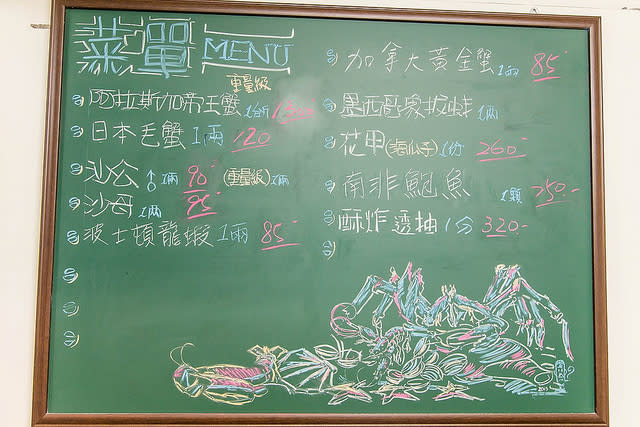 菜單 MENU
重量級
阿拉斯加帝王蟹 1台斤
日本毛蟹 1兩 120
沙公 1兩 90- (重量級) 1兩
沙母 1兩 95-
波士頓龍蝦 1兩 85-
加拿大黃金蟹 1兩 85-
墨西哥象拔蚌 1兩
花甲(海瓜子) 1份 260-
南非鮑魚 1顆 250-
酥炸透抽 1分 320.-